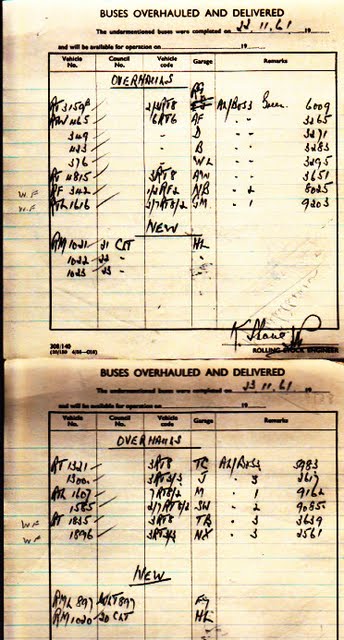 BUSES OVERHAULED AND DELIVERED
The undermentioned buses were completed on 22.11.61 19
and will be available for operation on 19
Vehicle No. Council No. Vehicle code Garage Remarks
OVERHAULS
RT 3159 2/4RT8 AL/BESS Green 6009
RTW 465 6RT6 AF " " 3265
349 " D " " 3271
423 " B " " 3283
376 " WL " " 3295
RT 4815 3RT8 AW " " 3651
W.F RF 342 1/2RF2 NB " 2 8025
W.F RTL 1616 2/7RT8/2 SM " 1 9203
NEW
RM 1021 21 CLT HL
1022 22 " "
1023 23 "
ROLLING STOCK ENGINEER
BUSES OVERHAULED AND DELIVERED
The undermentioned buses were completed on 23.11.61 19
and will be available for operation on 19
Vehicle No. Council No. Vehicle code Garage Remarks
OVERHAULS
RT 1321 3RT8 TC AL/BESS 5983
1300 3RT3/3 J " 3 2617
RTL 1607 7RT8/2 M " 1 9162
1585 2/7RT8/2 SW " 2 9085
W.F RT 1835 3RT8 TB " 3 3639
W.F 1896 3RT3/3 NX " 3 2561
NEW
RML 897 WLT897
RM 1020 20 CLT HL